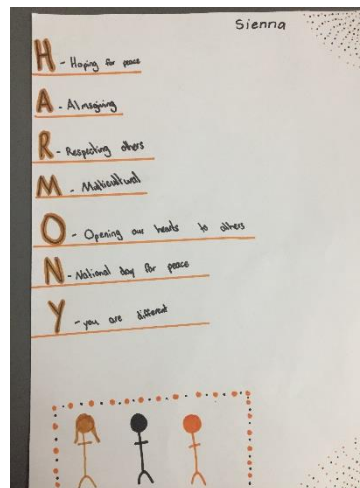 Sienna
H - Hoping for peace
A - Almsgiving
R - Respecting others
M - Multicultural
O - Opening our hearts to others
N - National day for peace
Y - you are different